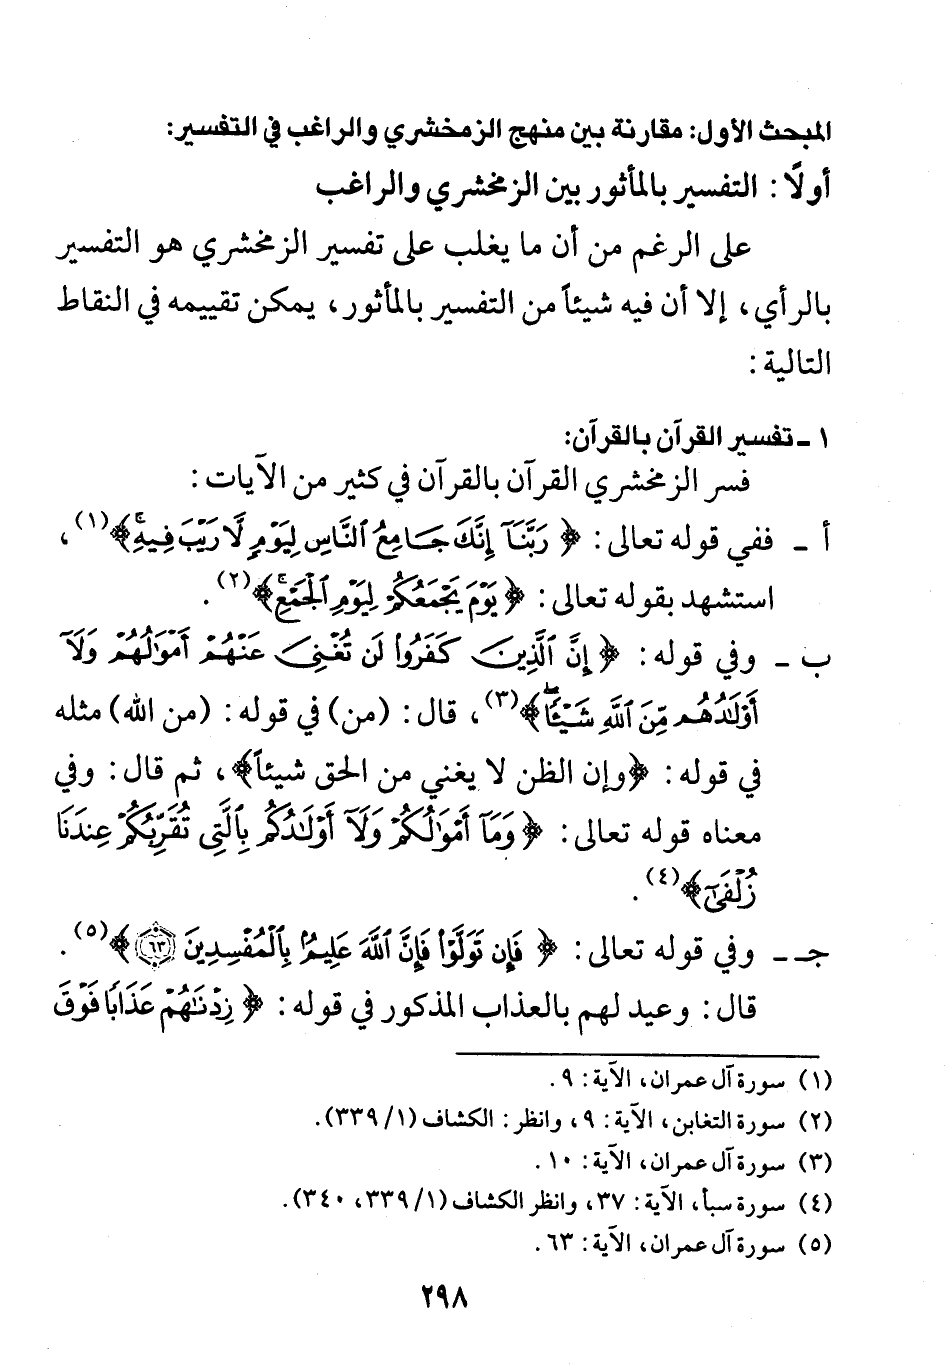 المبحث الأول: مقارنة بين منهج الزمخشري والراغب في التفسير:
أولًا: التفسير بالمأثور بين الزمخشري والراغب
على الرغم من أن ما يغلب على تفسير الزمخشري هو التفسير
بالرأي، إلا أن فيه شيئاً من التفسير بالمأثور، يمكن تقييمه في النقاط
التالية:
١ ـ تفسير القرآن بالقرآن:
فسر الزمخشري القرآن بالقرآن في كثير من الآيات:
أ ـ ففي قوله تعالى: ﴿رَبَّنَآ إِنَّكَ جَامِعُ ٱلنَّاسِ لِيَوْمٍ لَّا رَيْبَ فِيهِۚ﴾(١)،
استشهد بقوله تعالى: ﴿يَوْمَ يَجْمَعُكُمْ لِيَوْمِ ٱلْجَمْعِۖ﴾(٢).
ب ـ وفي قوله: ﴿إِنَّ ٱلَّذِينَ كَفَرُوا۟ لَن تُغْنِىَ عَنْهُمْ أَمْوَٰلُهُمْ وَلَآ
أَوْلَٰدُهُم مِّنَ ٱللَّهِ شَيْـًٔاۖ﴾(٣)، قال: (من) في قوله: (من الله) مثله
في قوله: ﴿وإن الظن لا يغني من الحق شيئاً﴾، ثم قال: وفي
معناه قوله تعالى: ﴿وَمَآ أَمْوَٰلُكُمْ وَلَآ أَوْلَٰدُكُم بِٱلَّتِى تُقَرِّبُكُمْ عِندَنَا
زُلْفَىٰٓ﴾(٤).
جـ ـ وفي قوله تعالى: ﴿فَإِن تَوَلَّوْا۟ فَإِنَّ ٱللَّهَ عَلِيمٌۢ بِٱلْمُفْسِدِينَ ٦٣﴾(٥).
قال: وعيد لهم بالعذاب المذكور في قوله: ﴿زِدْنَٰهُمْ عَذَابًا فَوْقَ
(١) سورة آل عمران، الآية: ٩.
(٢) سورة التغابن، الآية: ٩، وانظر: الكشاف (١/٣٣٩).
(٣) سورة آل عمران، الآية: ١٠.
(٤) سورة سبأ، الآية: ٣٧، وانظر الكشاف (١/٣٣٩، ٣٤٠).
(٥) سورة آل عمران، الآية: ٦٣.
٢٩٨